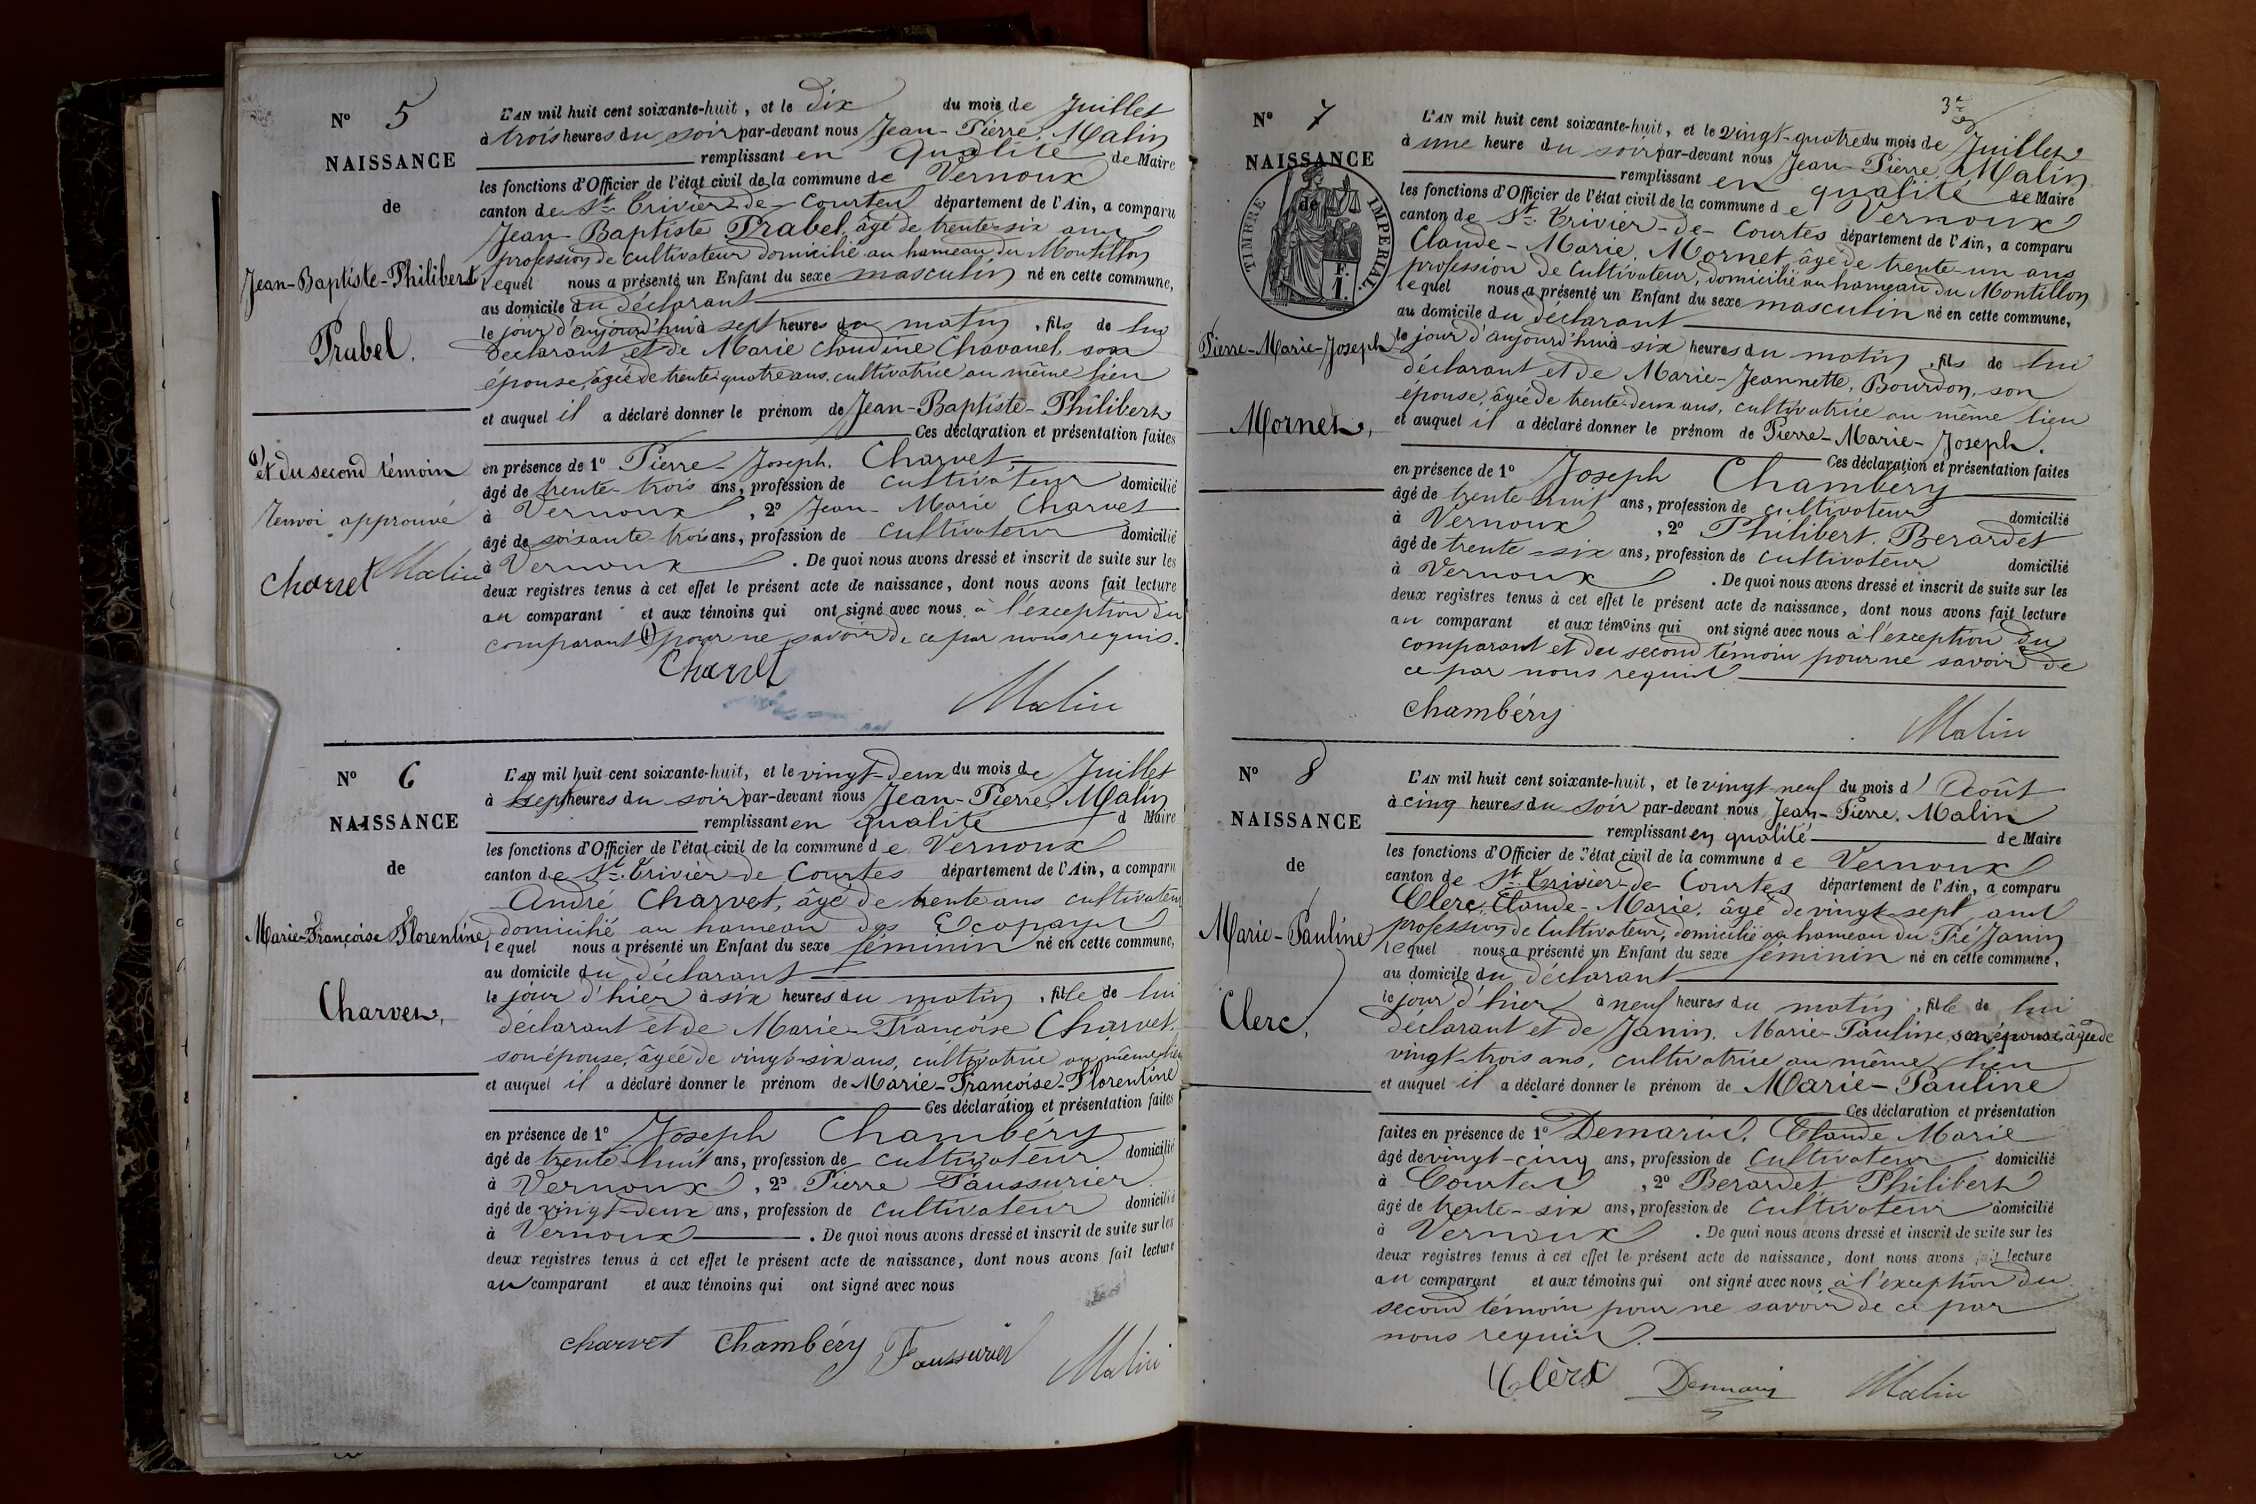 N° 5
NAISSANCE
de
Jean-Baptiste-Philibert
Prabel.
(1) et du second témoin
renvoi approuvé
Charvet Malin
L'AN mil huit cent soixante-huit, et le dix du mois de Juillet
à trois heures du soir par-devant nous Jean-Pierre Malin
remplissant en qualité de Maire
les fonctions d'Officier de l'état civil de la commune de Vernoux
canton de St Trivier-de-Courtes département de l'Ain, a comparu
Jean-Baptiste Prabel, âgé de trente-six ans
profession de cultivateur domicilié au hameau du Montillon
lequel nous a présenté un Enfant du sexe masculin né en cette commune,
au domicile du déclarant
le jour d'aujourd'hui à sept heures du matin, fils de lui
déclarant et de Marie Claudine Chavanel, son
épouse, âgée de trente quatre ans, cultivatrice au même lieu
et auquel il a déclaré donner le prénom de Jean-Baptiste-Philibert
Ces déclaration et présentation faites
en présence de 1° Pierre-Joseph, Charvet
âgé de trente-trois ans, profession de cultivateur domicilié
à Vernoux, 2° Jean-Marie Charvet
âgé de soixante-trois ans, profession de cultivateur domicilié
à Vernoux. De quoi nous avons dressé et inscrit de suite sur les
deux registres tenus à cet effet le présent acte de naissance, dont nous avons fait lecture
au comparant et aux témoins qui ont signé avec nous à l'exception du
comparant (1) pour ne savoir de ce par nous requis.
Charvet
Malin
N° 6
NAISSANCE
de
Marie-Françoise Florentine
Charvet,
L'AN mil huit cent soixante-huit, et le vingt-deux du mois de Juillet
à sept heures du soir par-devant nous Jean-Pierre Malin
remplissant en qualité d Maire
les fonctions d'Officier de l'état civil de la commune de Vernoux
canton de St Trivier-de Courtes département de l'Ain, a comparu
André Charvet, âgé de trente ans cultivateur
domicilié au hameau des Ecopayes
lequel nous a présenté un Enfant du sexe féminin né en cette commune,
au domicile du déclarant
le jour d'hier à six heures du matin, fille de lui
déclarant et de Marie-Françoise Charvet,
son épouse, âgée de vingt-six ans, cultivatrice au même lieu
et auquel il a déclaré donner le prénom de Marie-Françoise-Florentine
Ces déclaration et présentation faites
en présence de 1° Joseph Chambéry
âgé de trente-huit ans, profession de cultivateur domicilié
à Vernoux, 2° Pierre Faussurier
âgé de vingt-deux ans, profession de cultivateur domicilié
à Vernoux. De quoi nous avons dressé et inscrit de suite sur les
deux registres tenus à cet effet le présent acte de naissance, dont nous avons fait lecture
au comparant et aux témoins qui ont signé avec nous
Charvet Chambéry Faussurier Malin
3e
N° 7
NAISSANCE
de
TIMBRE IMPERIAL
F.
1.
Pierre-Marie-Joseph
Mornet,
L'AN mil huit cent soixante-huit, et le vingt-quatre du mois de Juillet
à une heure du soir par-devant nous Jean-Pierre Malin
remplissant en qualité de Maire
les fonctions d'Officier de l'état civil de la commune de Vernoux
canton de St Trivier-de-Courtes département de l'Ain, a comparu
Claude-Marie, Mornet, âgé de trente-un ans
profession de Cultivateur, domicilié au hameau du Montillon
lequel nous a présenté un Enfant du sexe masculin né en cette commune,
au domicile du déclarant
le jour d'aujourd'hui à six heures du matin, fils de lui
déclarant et de Marie-Jeannette, Bourdon, son
épouse, âgée de trente-deux ans, cultivatrice au même lieu
et auquel il a déclaré donner le prénom de Pierre-Marie-Joseph.
Ces déclaration et présentation faites
en présence de 1° Joseph Chambéry
âgé de trente-huit ans, profession de cultivateur domicilié
à Vernoux, 2° Philibert, Berardet
âgé de trente-six ans, profession de cultivateur domicilié
à Vernoux. De quoi nous avons dressé et inscrit de suite sur les
deux registres tenus à cet effet le présent acte de naissance, dont nous avons fait lecture
au comparant et aux témoins qui ont signé avec nous à l'exception du
comparant et du second témoin pour ne savoir de
ce par nous requis
Chambéry
Malin
N° 8
NAISSANCE
de
Marie-Pauline
Clerc,
L'AN mil huit cent soixante-huit, et le vingt neuf du mois d'Août
à cinq heures du soir par-devant nous Jean-Pierre Malin
remplissant en qualité de Maire
les fonctions d'Officier de l'état civil de la commune de Vernoux
canton de St Trivier-de-Courtes département de l'Ain, a comparu
Clerc, Claude-Marie, âgé de vingt-sept ans
profession de Cultivateur, domicilié au hameau du Pré Janin
lequel nous a présenté un Enfant du sexe féminin né en cette commune,
au domicile du déclarant
le jour d'hier à neuf heures du matin, fille de lui
déclarant et de Janin, Marie-Pauline, son épouse, âgée de
vingt-trois ans, cultivatrice au même lieu
et auquel il a déclaré donner le prénom de Marie-Pauline
Ces déclaration et présentation
faites en présence de 1° Demarin, Claude Marie
âgé de vingt-cinq ans, profession de Cultivateur domicilié
à Courtes, 2° Berardet Philibert
âgé de trente-six ans, profession de Cultivateur domicilié
à Vernoux. De quoi nous avons dressé et inscrit de suite sur les
deux registres tenus à cet effet le présent acte de naissance, dont nous avons fait lecture
au comparant et aux témoins qui ont signé avec nous à l'exception du
second témoin pour ne savoir de ce par
nous requis.
Clerc Demarin Malin